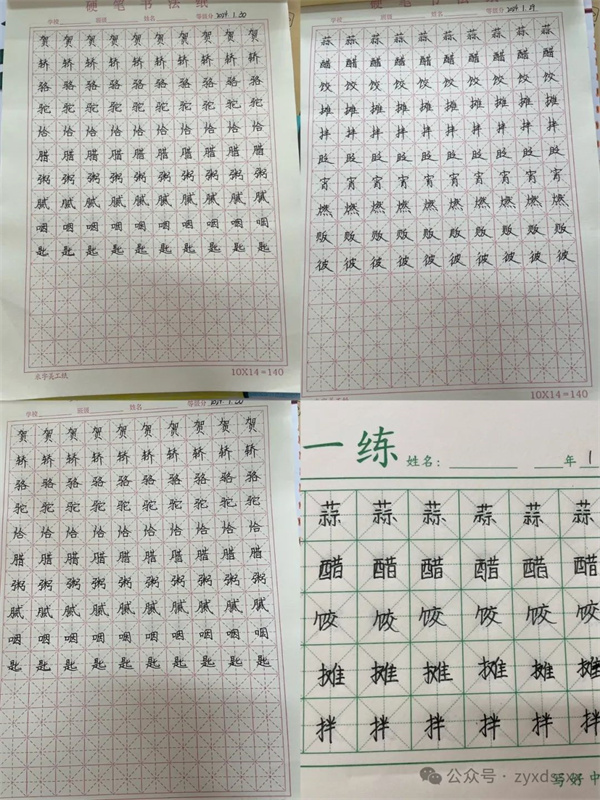 硬笔书法纸
学校 班级 姓名 等级分 2024.1.20
贺贺贺贺贺贺贺贺贺贺
轿轿轿轿轿轿轿轿轿轿
骆骆骆骆骆骆骆骆骆骆
驼驼驼驼驼驼驼驼驼驼
恰恰恰恰恰恰恰恰恰恰
腊腊腊腊腊腊腊腊腊腊
粥粥粥粥粥粥粥粥粥粥
腻腻腻腻腻腻腻腻腻腻
咽咽咽咽咽咽咽咽咽咽
匙匙匙匙匙匙匙匙匙匙
10X14=140
硬笔书法纸
学校 班级 姓名 等级分
蒜蒜蒜蒜蒜蒜蒜蒜蒜蒜
醋醋醋醋醋醋醋醋醋醋
饺饺饺饺饺饺饺饺饺饺
摊摊摊摊摊摊摊摊摊摊
拌拌拌拌拌拌拌拌拌拌
眨眨眨眨眨眨眨眨眨眨
宵宵宵宵宵宵宵宵宵宵
燃燃燃燃燃燃燃燃燃燃
贩贩贩贩贩贩贩贩贩贩
彼彼彼彼彼彼彼彼彼彼
10X14=140
学校 班级 姓名 等级分 2024.1.20
贺贺贺贺贺贺贺贺贺贺
轿轿轿轿轿轿轿轿轿轿
骆骆骆骆骆骆骆骆骆骆
驼驼驼驼驼驼驼驼驼驼
恰恰恰恰恰恰恰恰恰恰
腊腊腊腊腊腊腊腊腊腊
粥粥粥粥粥粥粥粥粥粥
腻腻腻腻腻腻腻腻腻腻
咽咽咽咽咽咽咽咽咽咽
匙匙匙匙匙匙匙匙匙匙
一练 姓名: 年 1
蒜蒜蒜蒜蒜蒜
醋醋醋醋醋醋
饺饺饺饺饺饺
摊摊摊摊摊摊
拌拌拌拌拌拌
写好中
公众号 · zyxdsxx